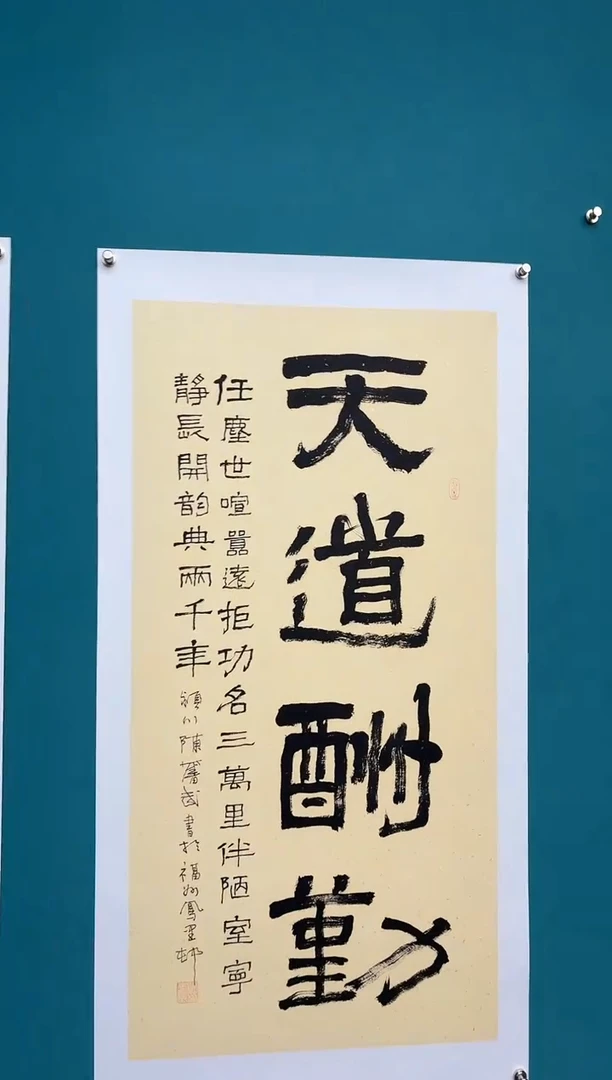 天道酬勤
任塵世喧囂遠拒功名三萬里伴陋室寧
靜長開韵典兩千年 川陳武書於福州鳳里邨